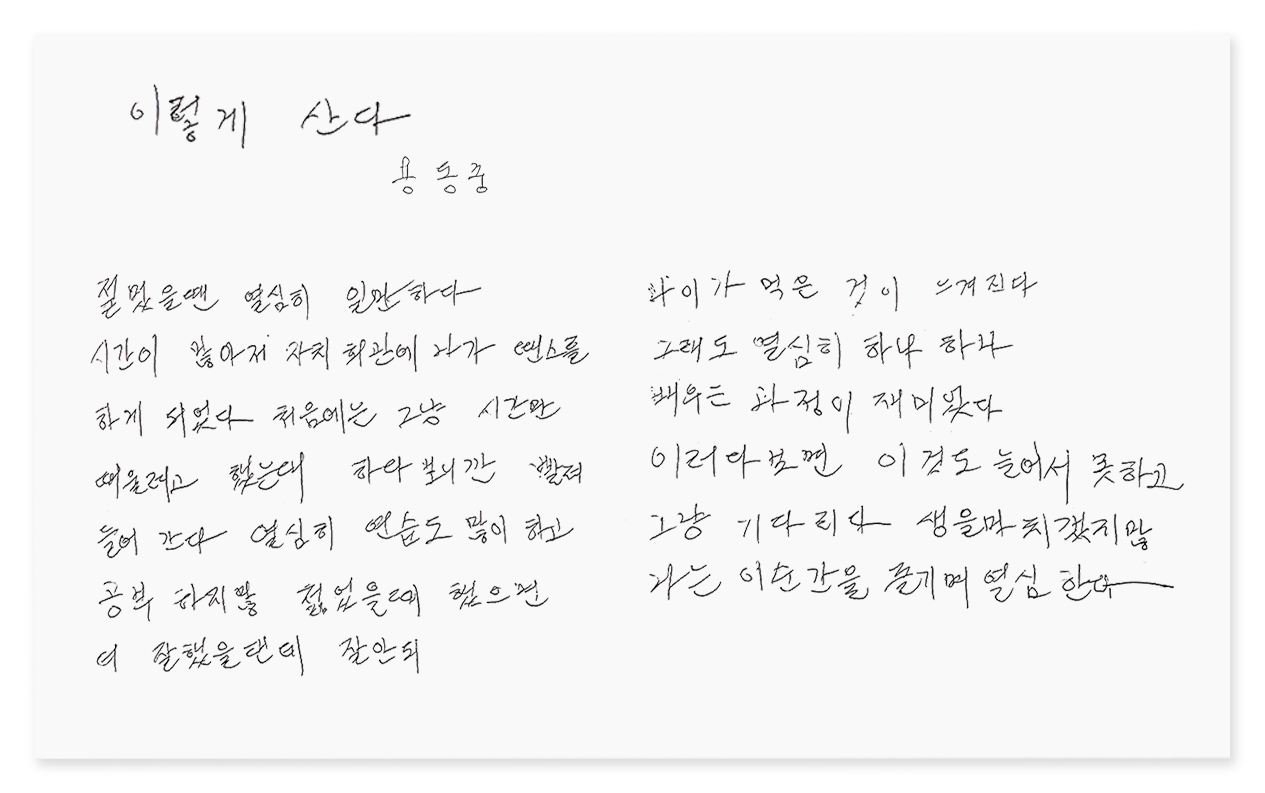 이렇게 산다
용동중
절멌을땐 열심히 일만하다
시간이 많아저 자치회관에 나가 땐스를
하게 되었다 처음에는 그냥 시간만
때울려고 했는대 하다보니간 빨져
들어 간다 열심히 연습도 많이 하고
공부 하지많 젊었을때 했으면
더 잘했을탠데 잘안되
나이가 먹은 것이 느겨진다
그래도 열심히 하나 하나
배우는 과정이 재미있다
이러다보면 이것도 늘어서 못하고
그냥 기다리다 생을마치겠지많
나는 이순간을 즐기며 열심 한다